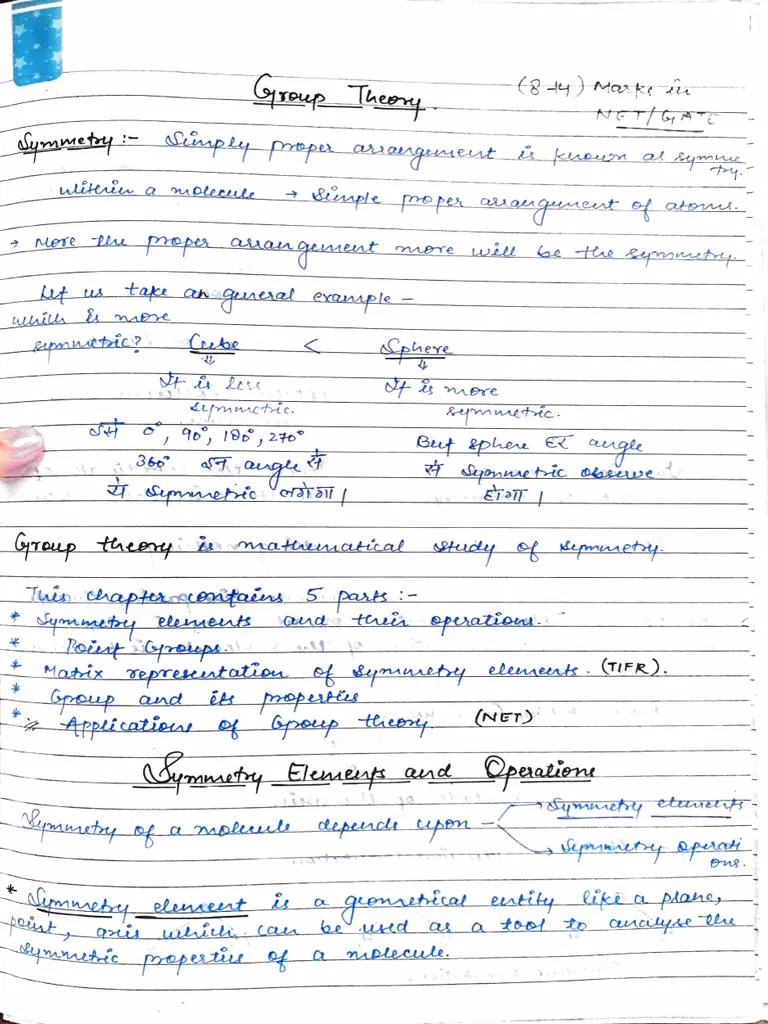 Group Theory.
(8-14) Marks in
NET/GATE
Symmetry :- Simply proper arrangement is known as symme
try.
within a molecule → Simple proper arrangement of atoms.
→ More the proper arrangement more will be the symmetry.
Let us take an general example -
which is more
symmetric? Cube < Sphere
⇓ ⇓
It is less It is more
symmetric. symmetric.
उसे 0°, 90°, 180°, 270° But sphere हर angle
360° उन angle से से symmetric observe
ये symmetric लगेगा । होगा ।
Group theory is mathematical study of symmetry.
This chapter contains 5 parts :-
* Symmetry elements and their operations.
* Point Groups.
* Matrix representation of symmetry elements. (TIFR).
* Group and its properties
* Applications of Group theory (NET)
Symmetry Elements and Operations
Symmetry of a molecule depends upon → Symmetry elements
→ Symmetry operati
ons.
* Symmetry element is a geometrical entity like a plane,
point, axis which can be used as a tool to analyse the
symmetric properties of a molecule.